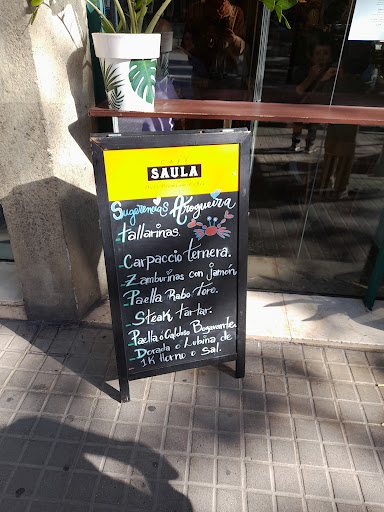 CAFÉ
SAULA
Sugerencias Arogueira
-Tallarinas.
-Carpaccio ternera.
-Zamburiñas con jamón.
-Paella Rabo Toro.
-Steak tartar.
-Paella o Caldoso Bogavante.
-Dorada o Lubina de
1K Horno o Sal.